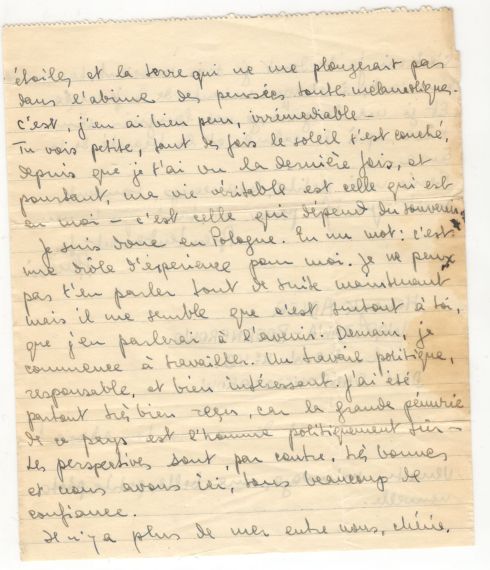 étoiles et la terre qui ne me plongerait pas
dans l'abîme des pensées toute mélancoliques.
C'est, j'en ai bien peur, irrémediable –
Tu vois petite, tant de fois le soleil s'est couché,
depuis que je t'ai vu la dernière fois, et
pourtant, ma vie véritable est celle qui est
en moi – c'est celle qui dépend du souvenir.
Je suis donc en Pologne. En un mot: c'est
une drôle d'éxperience pour moi. Je ne peux
pas t'en parler tout de suite maintenant
mais il me semble que c'est surtout à toi,
que j'en parlerai à l'avenir. Demain, je
commence à travailler. Un travail politique,
responsable, et bien intéressant. J'ai été
partout très bien reçu, car la grande pénurie
de ce pays est l'homme politiquement sûr –
Les perspectives sont, par contre, très bonnes
et nous avons ici, tous beaucoup de
confiance.
Il n'y a plus de mer entre nous, chérie.